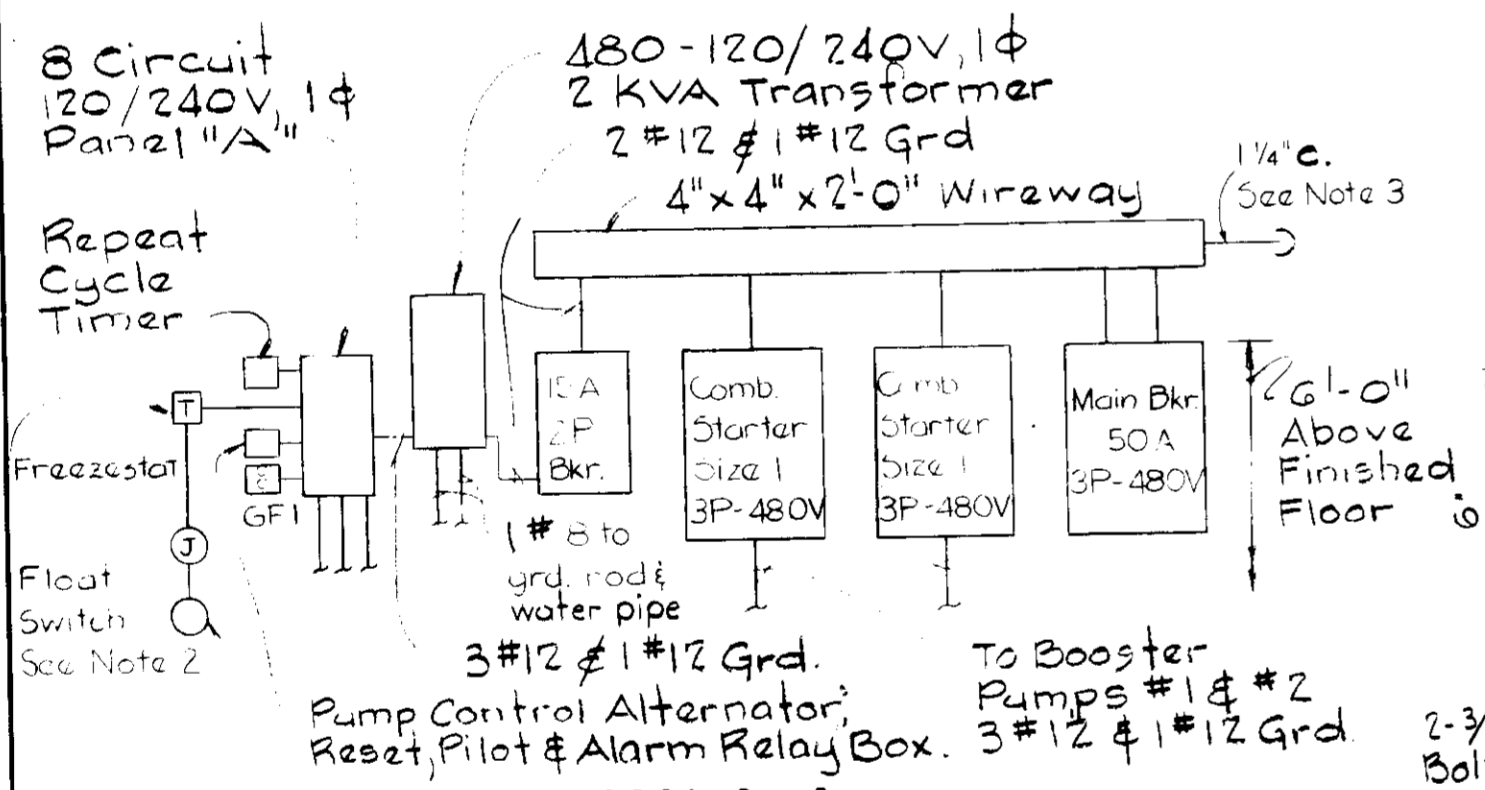 8 Circuit
120/240V, 1ϕ
Panel "A"
480-120/240V, 1ϕ
2 KVA Transformer
2 #12 & 1 #12 Grd
4" x 4" x 2'-0" Wireway
1 1/4" C.
See Note 3
Repeat
Cycle
Timer
T
Freezestat
GFI
J
Float
Switch
See Note 2
15A
2P
Bkr.
Comb.
Starter
Size 1
3P-480V
Comb
Starter
Size 1
3P-480V
Main Bkr.
50A
3P-480V
6'-0"
Above
Finished
Floor
1 # 8 to
grd. rod &
water pipe
3 #12 & 1 #12 Grd.
Pump Control Alternator,
Reset, Pilot & Alarm Relay Box.
To Booster
Pumps #1 & #2
3 #12 & 1 #12 Grd.
2-3/
Bol